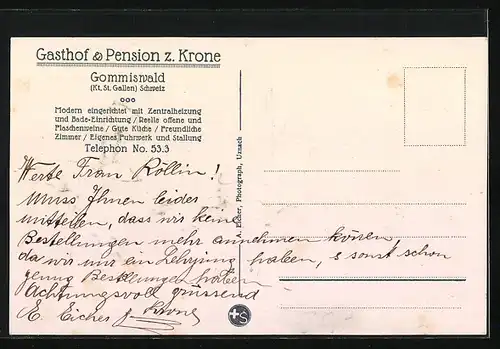 Gasthof & Pension z. Krone
Gommiswald
(Kt. St. Gallen) Schweiz
Modern eingerichtet mit Zentralheizung
und Bade-Einrichtung / Reelle offene und
Flaschenweine / Gute Küche / Freundliche
Zimmer / Eigenes Fuhrwerk und Stallung
Telephon No. 53.3
Werte Frau Röllin!
Muss Ihnen leider
mitteilen, dass wir keine
Bestellungen mehr annehmen können,
da wir nur ein haben, sonst schon
genug Bestellungen haben
Achtungsvoll grüssend
E. Eicher z. Krone
Photograph, Uznach
+S